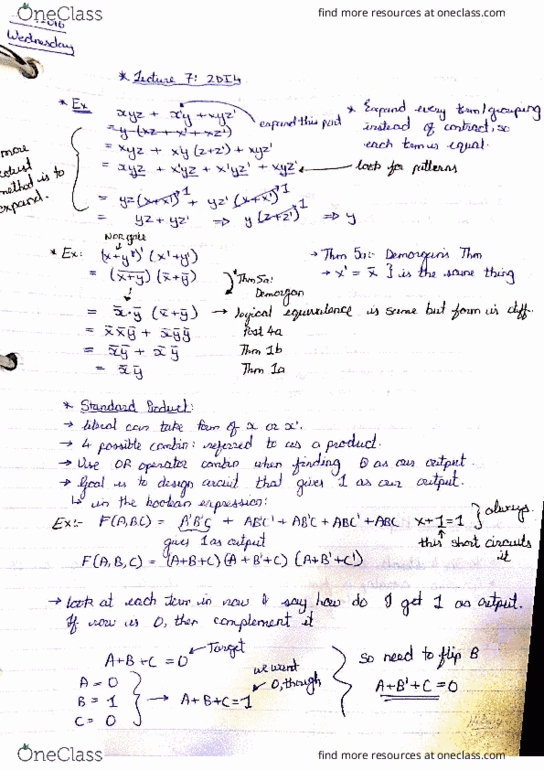 OneClass
find more resources at oneclass.com
Wednesday
* Lecture 7: 2DI4
* Ex
xyz + x'y + xyz'
expand this part
= y(xz + x' + xz')
= xyz + x'y(z+z') + xyz'
= xyz + x'yz + x'yz' + xyz'
look for patterns
= yz(x+x')1 + yz'(x+x')1
= yz + yz' ⇒ y(z+z')1 ⇒ y
* Expand every term/grouping
instead of contract, so
each term is equal.
more
robust
method is to
expand.
Nor gate
* Ex: (x+y)' (x'+y')
= (x̅+̅y̅) (x̅+y̅)
* Thm 5a:
Demorgan
→ Thm 5a: Demorgan's Thm
→ x' = x̅ } is the same thing
= x̅·y̅ (x̅+y̅) → logical equivalence is same but form is diff.
= x̅x̅y̅ + x̅y̅y̅ Post 4a
= x̅y̅ + x̅y̅ Thm 1b
= x̅y̅ Thm 1a
* Standard Product:
→ literal can take form of x or x'.
→ 4 possible combin: referred to as a product.
→ Use OR operator combin when finding 0 as our output.
→ Goal is to design circuit that gives 1 as our output.
↳ in the boolean expression:
Ex:- F(A,B,C) = A'B'C + AB'C' + AB'C + ABC' + ABC
gives 1 as output
x+1=1 } always.
this short circuits
it
F(A,B,C) = (A+B+C)(A+B'+C)(A+B'+C')
→ look at each term in row & say how do I get 1 as output.
If row is 0, then complement it
A+B+C=0 ← Target
A=0
B=1
C=0
→ A+B+C=1
we want
0, though
so need to flip B
A+B'+C=0
OneClass
find more resources at oneclass.com